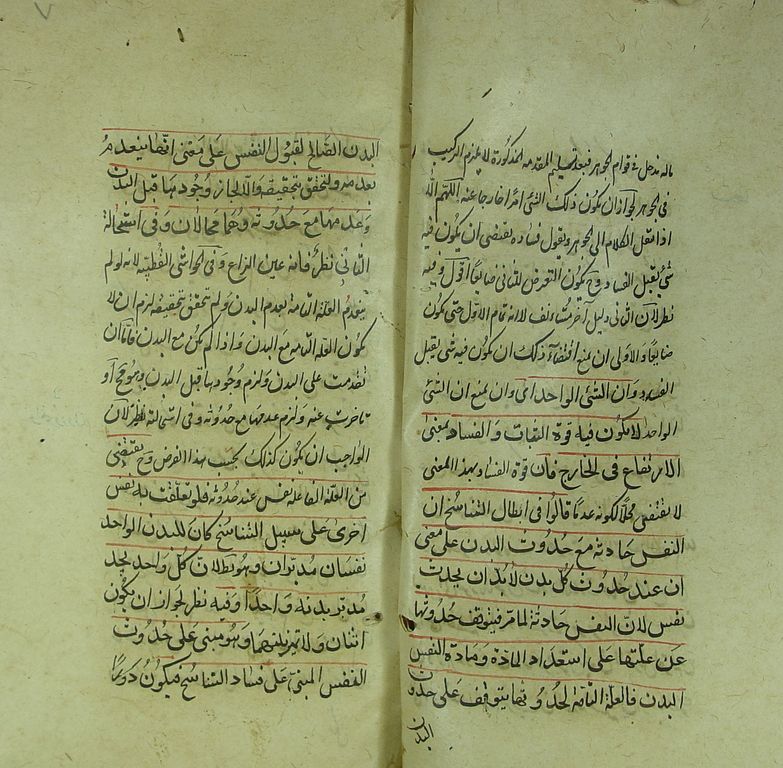 ماله مدخل في قوام الجوهر فبعد تسليم المقدمه المذكورة لا يلزم التركيب
في الجوهر لجواز ان يكون ذلك الشئ امرا خارجا عنه اللهم الا
اذا نقل الكلام الى الجوهر ويقول فساده يقتضى ان يكون فيه
شئ يقبل الفساد وح يكون التعرض للثانى ضايعا اقول وفيه
نظر لان الثانى دليل اخر مستأنف لا انه تمام الاول حتى يكون
ضايعا والاولى ان يمنع اقتضاء ذلك ان يكون فيه شئ يقبل
الفساد وان الشئ الواحد اى وان يمنع ان الشئ
الواحد لا يكون فيه قوة الثبات والفساد بمعنى
الارتفاع في الخارج فان قوة الفساد بهذا المعنى
لا يقتضى محلا لكونه عدما قالوا في ابطال التناسخ ان
النفس حادثة مع حدوث البدن على معنى
ان عند حدوث كل بدن لا بد ان يحدث
نفس لان النفس حادثة لما مر فيتوقف حدوثها
عن علتها على استعداد المادة ومادة النفس
البدن فالعلة التامة لحدوثها يتوقف على حدوث
البدن
البدن الصالح لقبول النفس على معنى انها ينعدم
بعدمه ولتحقق بتحقيقه والا لجاز وجودها قبل البدن
وعدمها مع حدوثه وهما محالان وفى استحالة
الثانى نظر فانه عين النزاع وفى الحواشى القطبية لانه لو لم
ينعدم العلة التامة بعدم البدن ولم تتحقق بتحقيقه لزم ان لا
يكون العلة التامه مع البدن واذا لم يكن مع البدن فاما ان
تقدمت على البدن ولزم وجودها قبل البدن وهو مح او
تاخرت عنه ولزم عدمها مع حدوثه وفى استحالته نظر لان
الواجب ان يكون كذلك بحسب هذا الفرض وح يقتضى
من العلة الفاعلة نفس عند حدوثه فلو تعلقت به نفس
اخرى على سبيل التناسخ كان للبدن الواحد
نفسان مدبرتان وهو بط لان كل واحد يجد
مدبر بدنه واحدا وفيه نظر لجواز ان يكون
اثنان ولا تميز بينهما وهو مبنى على حدوث
النفس المبنى على فساد التناسخ فيكون دورا